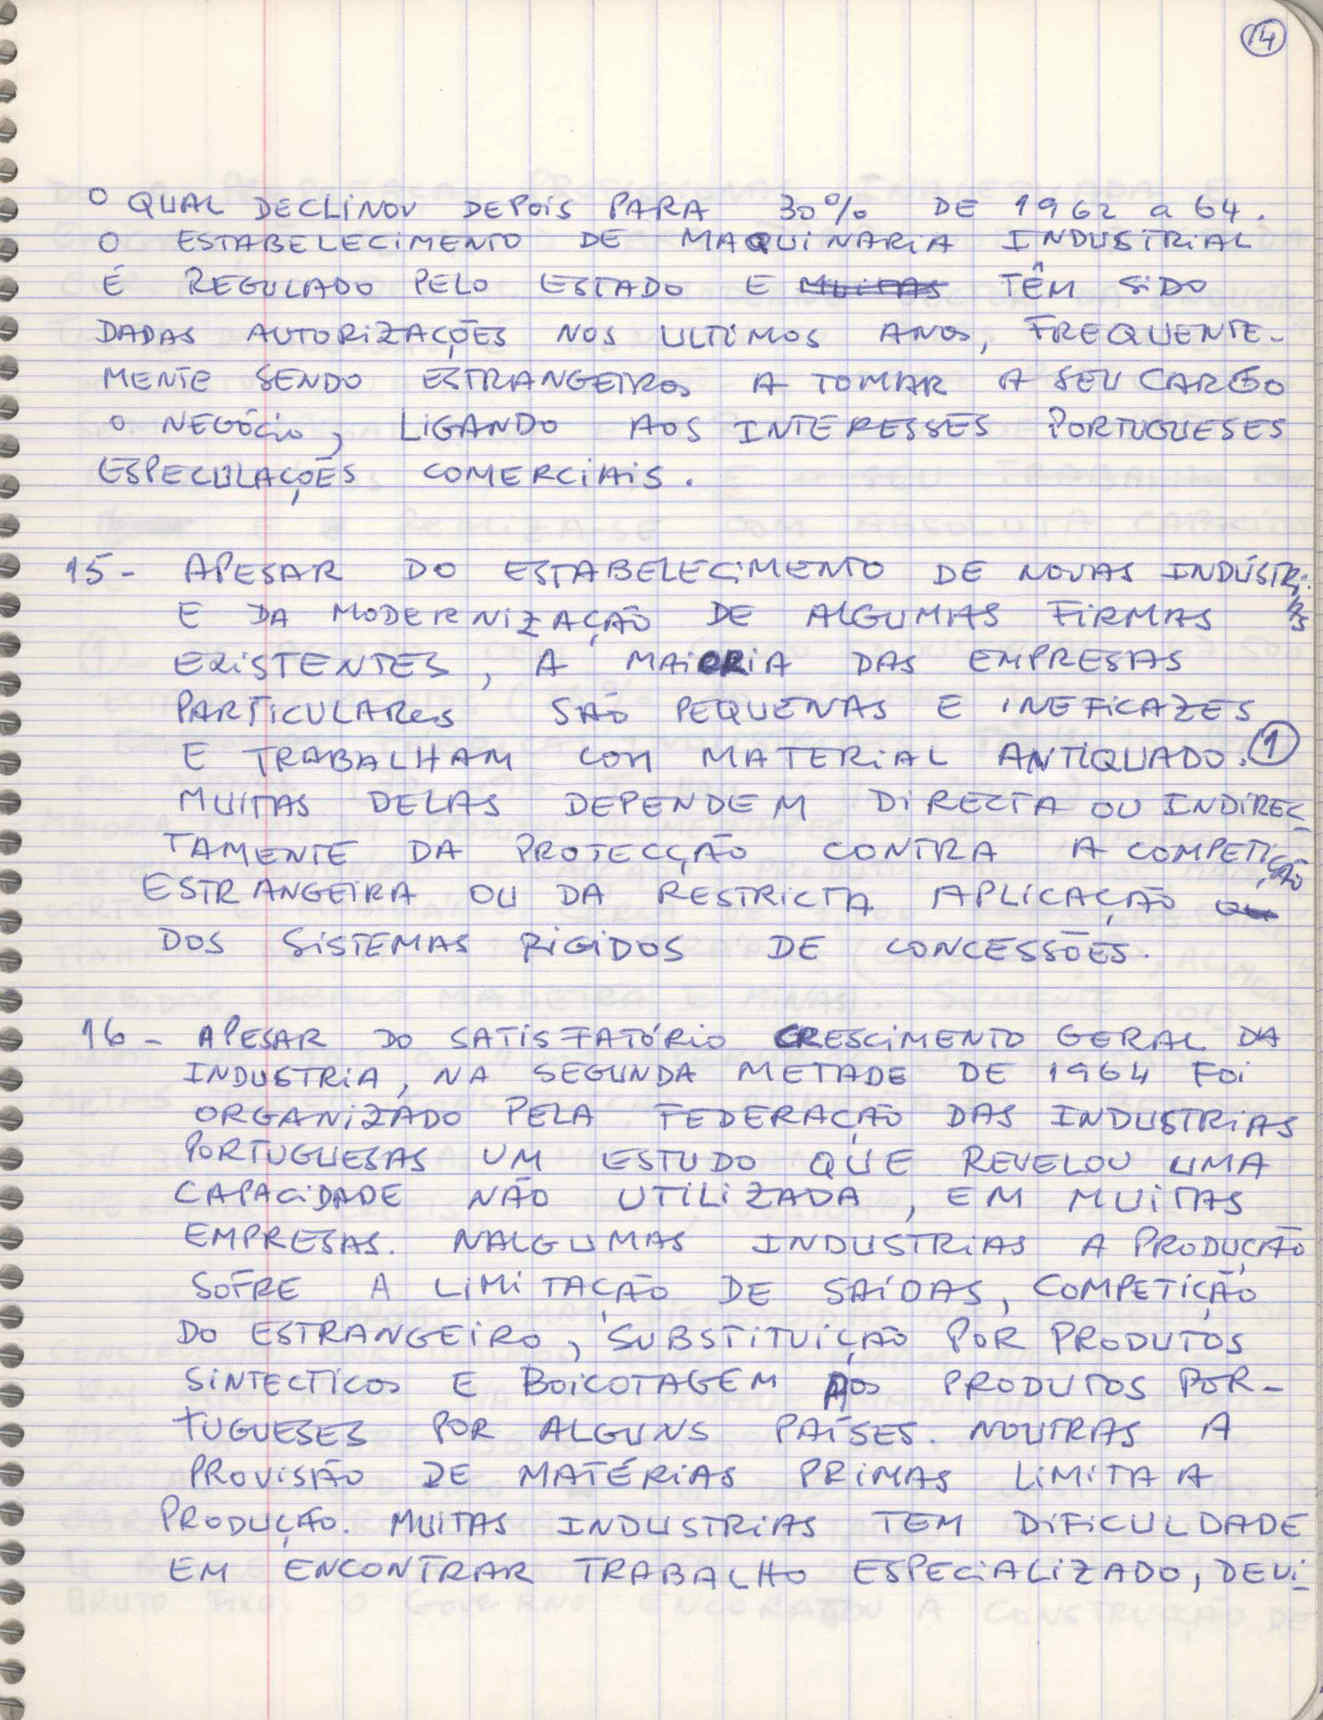 14
O QUAL DECLINOU DEPOIS PARA 30% DE 1962 a 64.
O ESTABELECIMENTO DE MAQUINARIA INDUSTRIAL
É REGULADO PELO ESTADO E MUITAS TÊM SIDO
DADAS AUTORIZAÇÕES NOS ULTIMOS ANOS, FREQUENTE-
MENTE SENDO ESTRANGEIROS A TOMAR A SEU CARGO
O NEGÓCIO, LIGANDO AOS INTERESSES PORTUGUESES
ESPECULAÇÕES COMERCIAIS.
15- APESAR DO ESTABELECIMENTO DE NOVAS INDÚSTRIAS
E DA MODERNIZAÇÃO DE ALGUMAS FIRMAS
EXISTENTES, A MAIORIA DAS EMPRESAS
PARTICULARES SÃO PEQUENAS E INEFICAZES
E TRABALHAM COM MATERIAL ANTIQUADO. 1
MUITAS DELAS DEPENDEM DIRECTA OU INDIREC-
TAMENTE DA PROTECÇÃO CONTRA A COMPETIÇÃO
ESTRANGEIRA OU DA RESTRICTA APLICAÇÃO
DOS SISTEMAS RIGIDOS DE CONCESSÕES.
16- APESAR DO SATISFATÓRIO CRESCIMENTO GERAL DA
INDUSTRIA, NA SEGUNDA METADE DE 1964 FOI
ORGANIZADO PELA FEDERAÇÃO DAS INDUSTRIAS
PORTUGUESAS UM ESTUDO QUE REVELOU UMA
CAPACIDADE NÃO UTILIZADA, EM MUITAS
EMPRESAS. NALGUMAS INDUSTRIAS A PRODUÇÃO
SOFRE A LIMITAÇÃO DE SAÍDAS, COMPETIÇÃO
DO ESTRANGEIRO, SUBSTITUIÇÃO POR PRODUTOS
SINTECTICOS E BOICOTAGEM AOS PRODUTOS POR-
TUGUESES POR ALGUNS PAÍSES. NOUTRAS A
PROVISÃO DE MATÉRIAS PRIMAS LIMITA A
PRODUÇÃO. MUITAS INDUSTRIAS TEM DIFICULDADE
EM ENCONTRAR TRABALHO ESPECIALIZADO, DEVI-